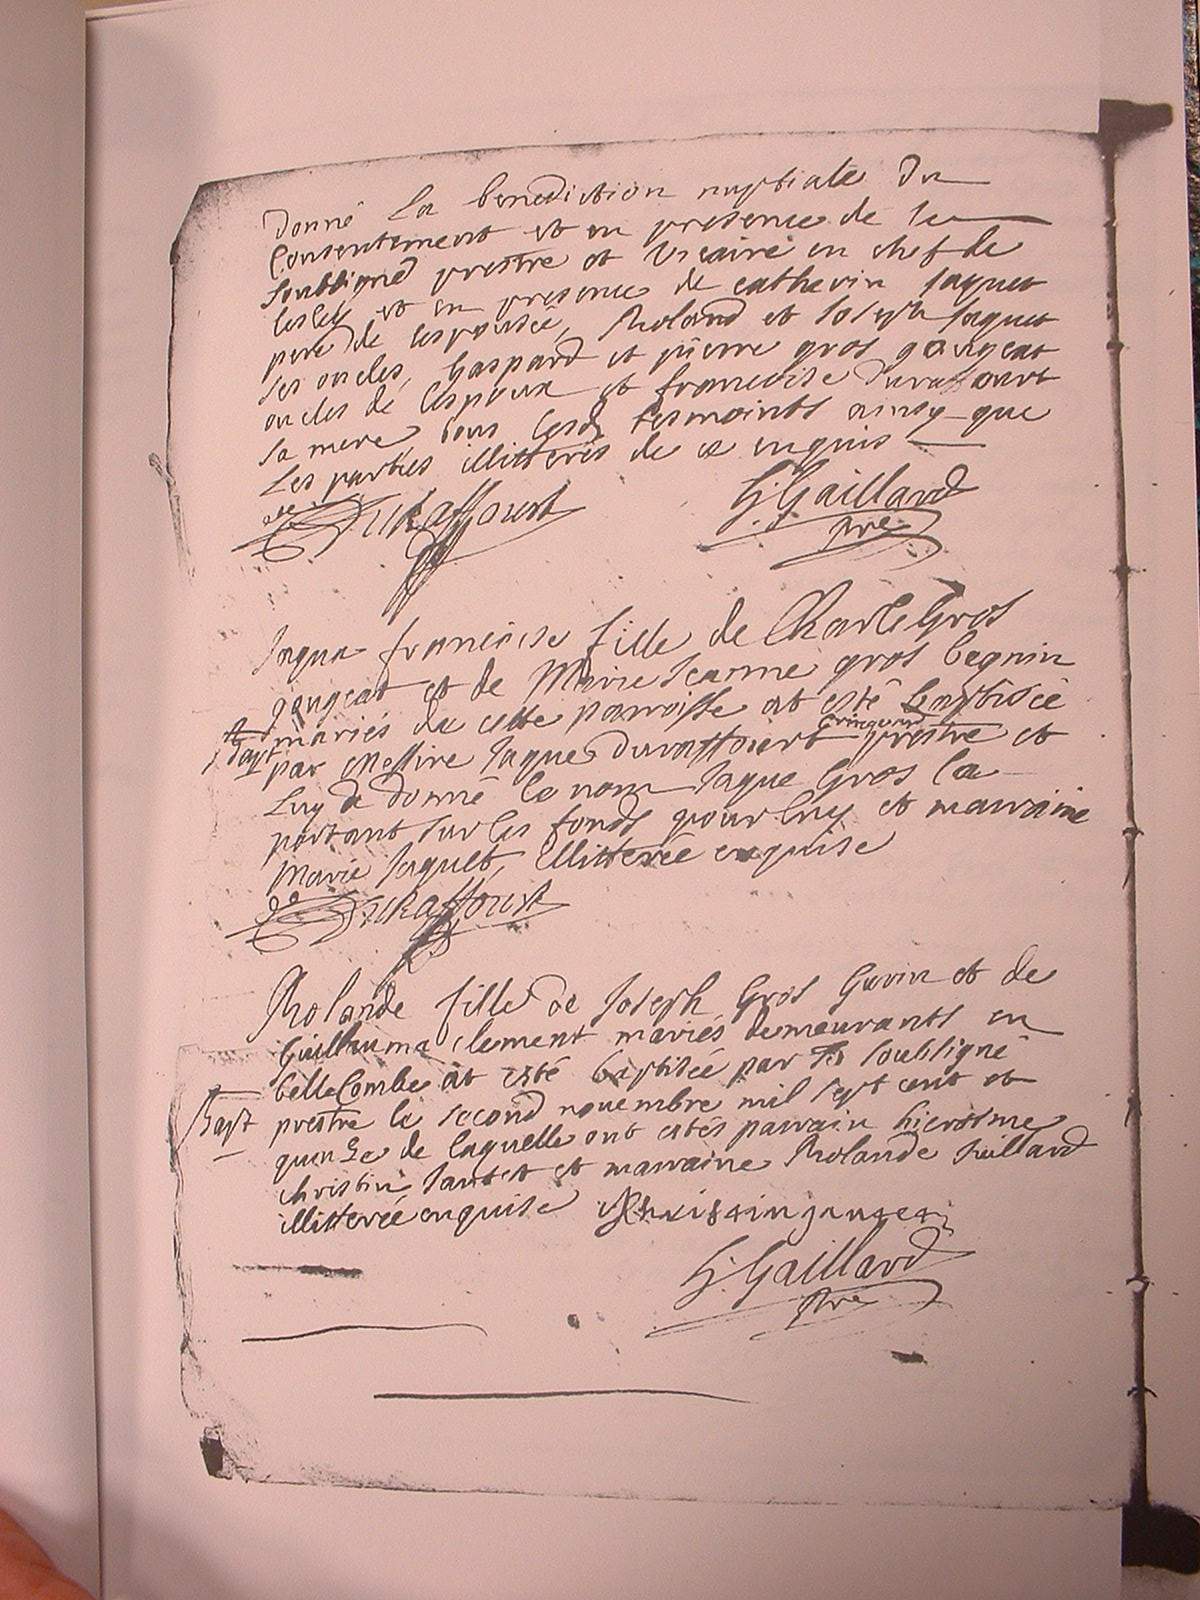 Donné La benediction nuptiale Du
Consentement et en presence de le
Soubsigné prestre et Vicaire en chef de
et en presence de catherin Jaquet
pere de lespousée, Roland et Joseph Jaquet
ses oncles, Gaspard et pierre gros gougeat
oncles de lespoux et francoise Duraffourt
sa mere tous lesd tesmoints ainsy que
Les parties illitterés de ce enquis
DuRaffourt G: Gaillard
pre
Jaqua francoise fille de Charle Gros
gougeat et de Marie Jeanne gros begnin
mariés de cette parroisse at esté baptisée
Bapt par Messire Jaque Duraffourt prestre et
Luy a donné le nom Jaque Gros la
portant sur les fonds pour luy et marraine
Marie Jaquet, illitterée enquise
DuRaffourt
Rolande fille de Joseph Gros Gurin et de
Guillauma clement mariés demeurants en
belleCombe at esté baptisée par soubsigné
Bapt prestre le second novembre mil sept cent et
quinze de laquelle ont estés parrain hierosme
christin Jantet et marraine Rolande Juillard
illitterée enquise
G: Gaillard
pre